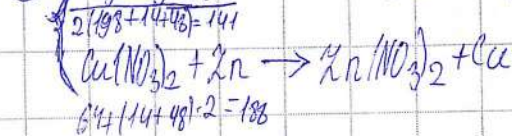 2(198+14+48)=141
Cu(NO3)2 + Zn → Zn(NO3)2 + Cu
64+(14+48)·2=188